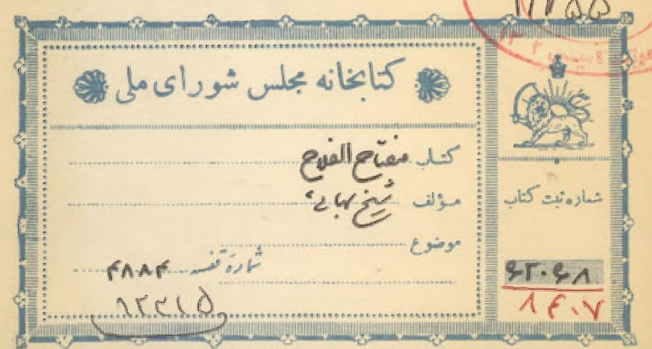 ۱۱۷۵۵
کتابخانه مجلس شورای ملی
کتاب مفتاح الفلاح
مؤلف شیخ بهائی
موضوع
شماره قفسه ۴۸۸۴
۱۲۳۱۵
شماره ثبت کتاب
۶۲۰۶۸
۸۴۰۷